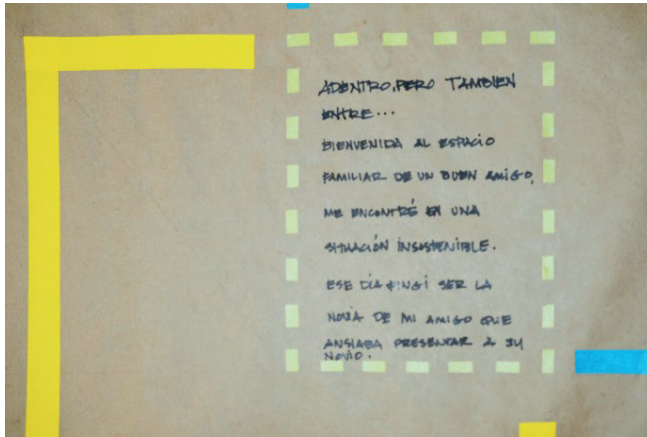 ADENTRO, PERO TAMBIEN
ENTRE...
BIENVENIDA AL ESPACIO
FAMILIAR DE UN BUEN AMIGO,
ME ENCONTRÉ EN UNA
SITUACIÓN INSOSTENIBLE.
ESE DÍA FINGÍ SER LA
NOVIA DE MI AMIGO QUE
ANSIABA PRESENTAR A SU
NOVIO.